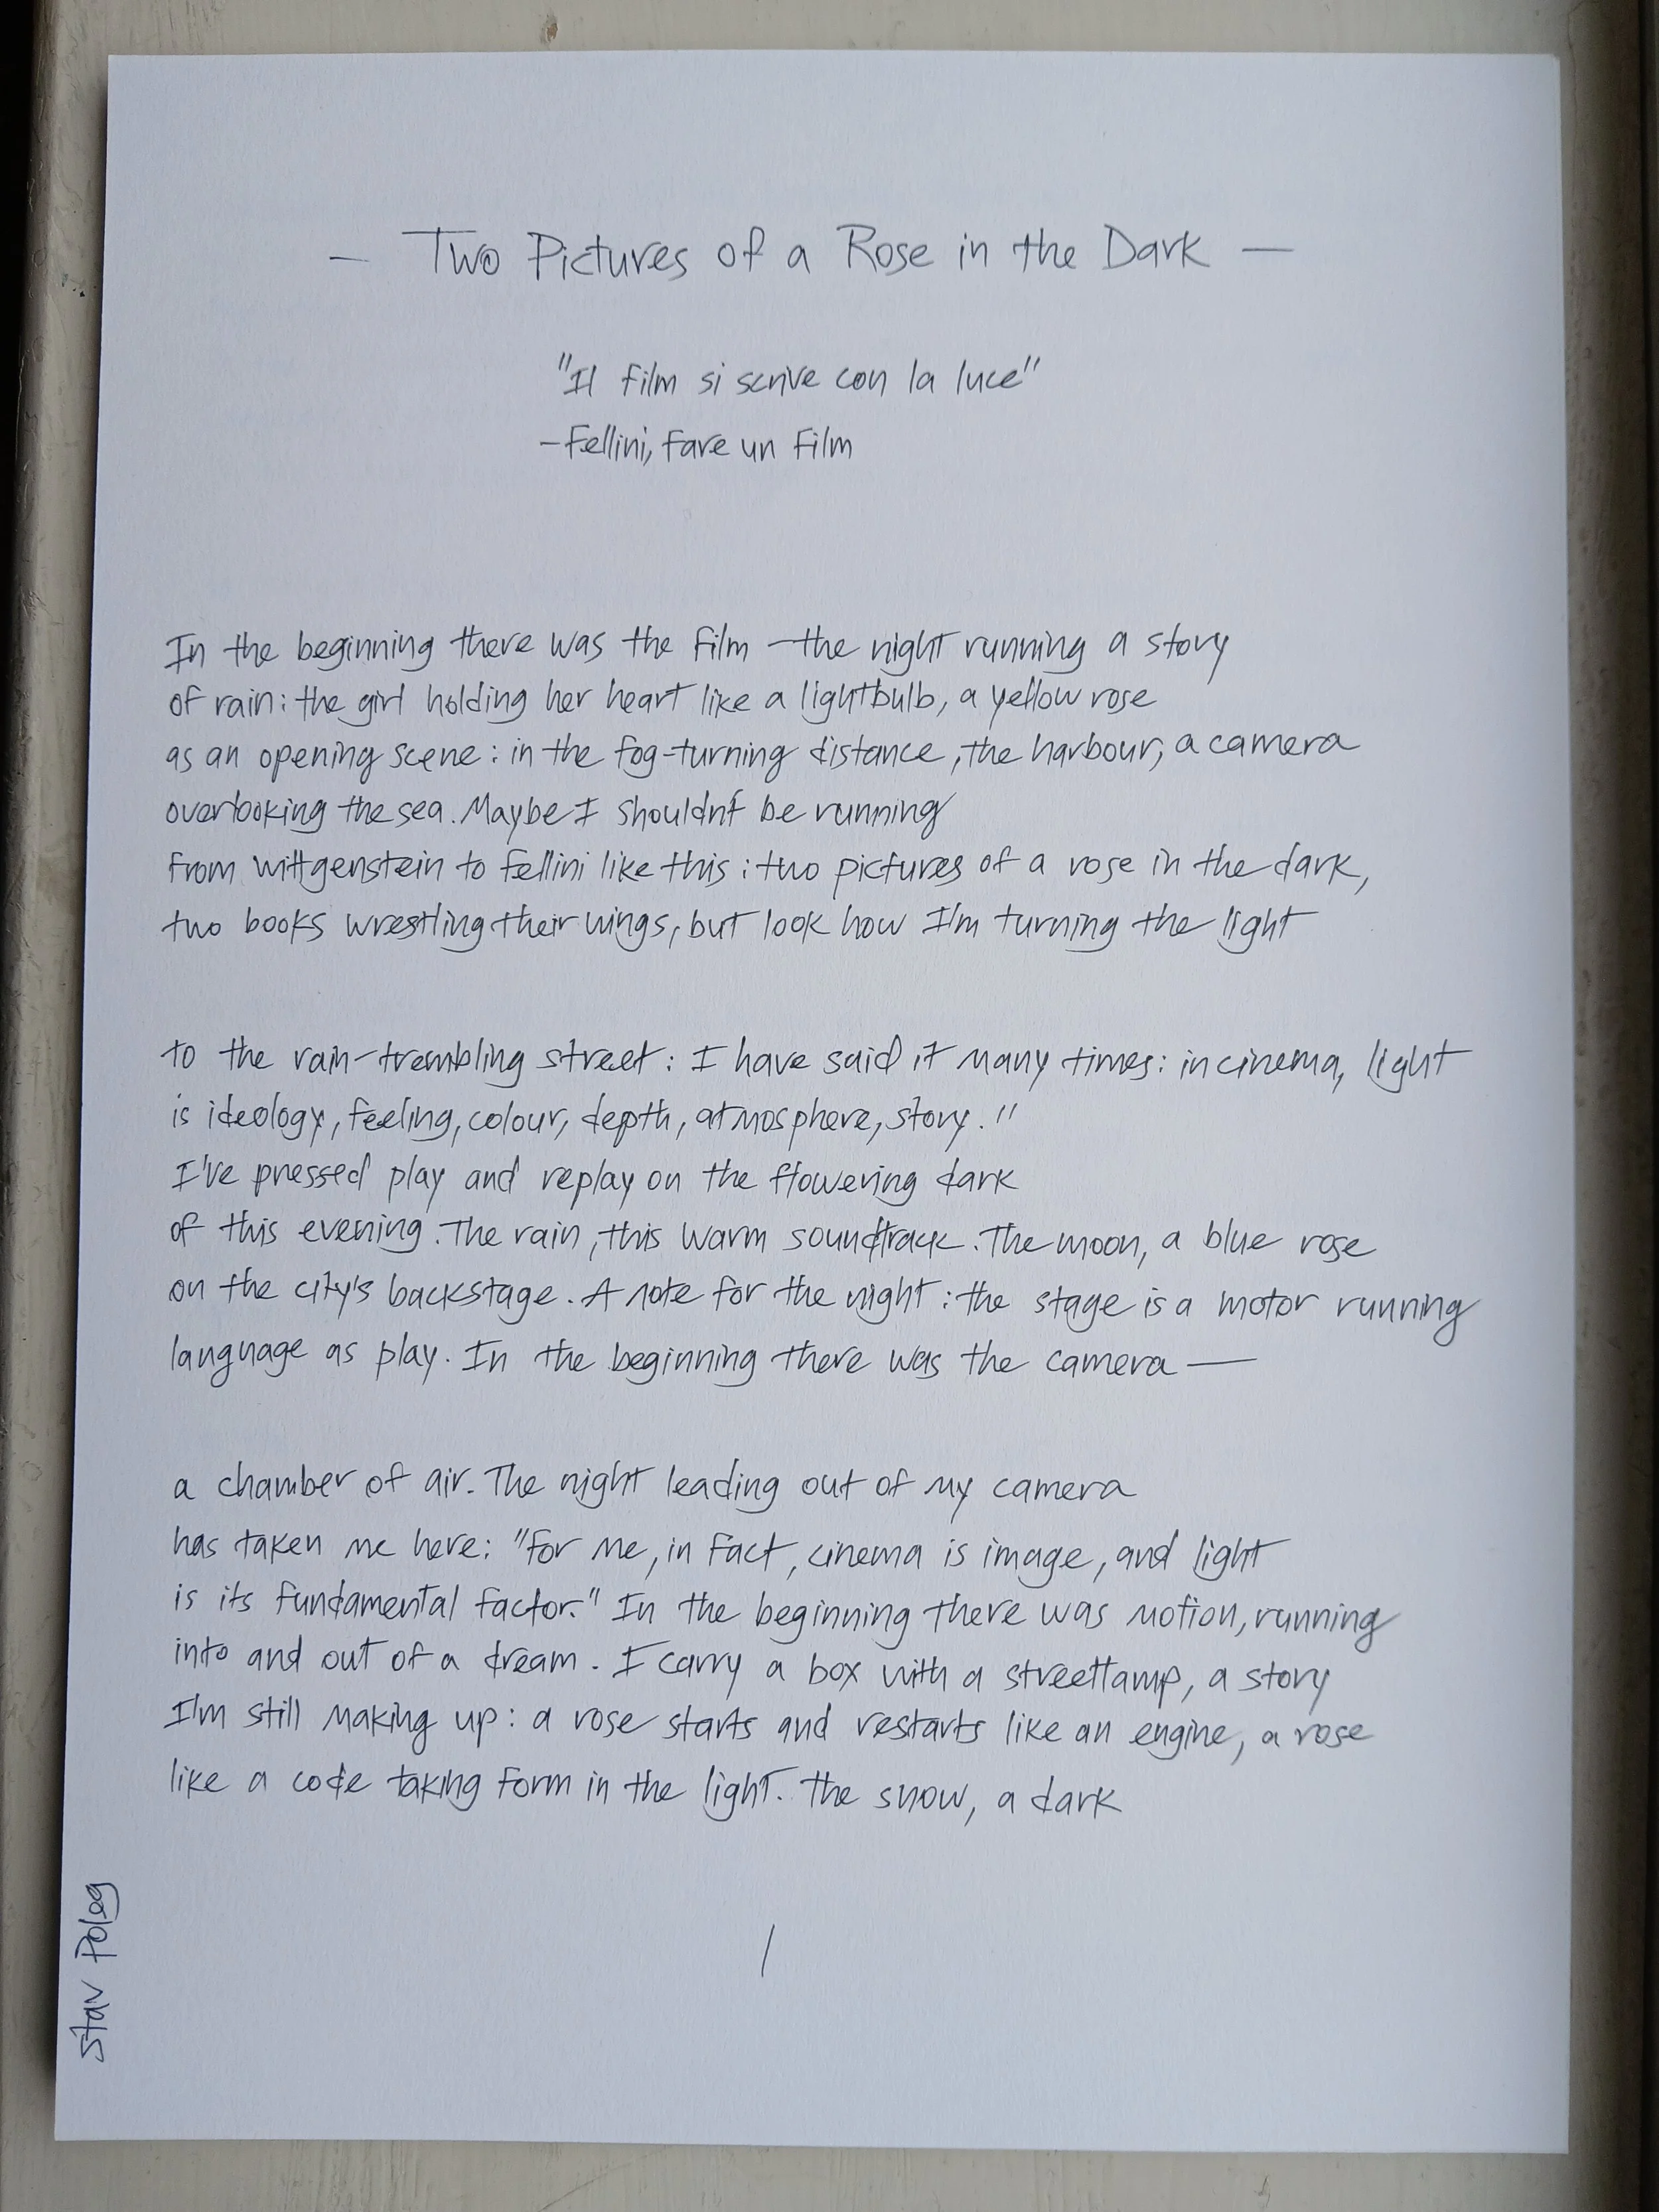 — Two Pictures of a Rose in the Dark —
"Il film si scrive con la luce"
—Fellini, Fare un Film
In the beginning there was the film — the night running a story
of rain: the girl holding her heart like a lightbulb, a yellow rose
as an opening scene: in the fog-turning distance, the harbour, a camera
overlooking the sea. Maybe I shouldn't be running
from Wittgenstein to Fellini like this: two pictures of a rose in the dark,
two books wrestling their wings, but look how I'm turning the light
to the rain-trembling street: I have said it many times: in cinema, light
is ideology, feeling, colour, depth, atmosphere, story."
I've pressed play and replay on the flowering dark
of this evening. The rain, this warm soundtrack. The moon, a blue rose
on the city's backstage. A note for the night: the stage is a motor running
language as play. In the beginning there was the camera —
a chamber of air. The night leading out of my camera
has taken me here: "For me, in fact, cinema is image, and light
is its fundamental factor." In the beginning there was motion, running
into and out of a dream. I carry a box with a streetlamp, a story
I'm still making up: a rose starts and restarts like an engine, a rose
like a code taking form in the light. The snow, a dark
1
Stav Poleg